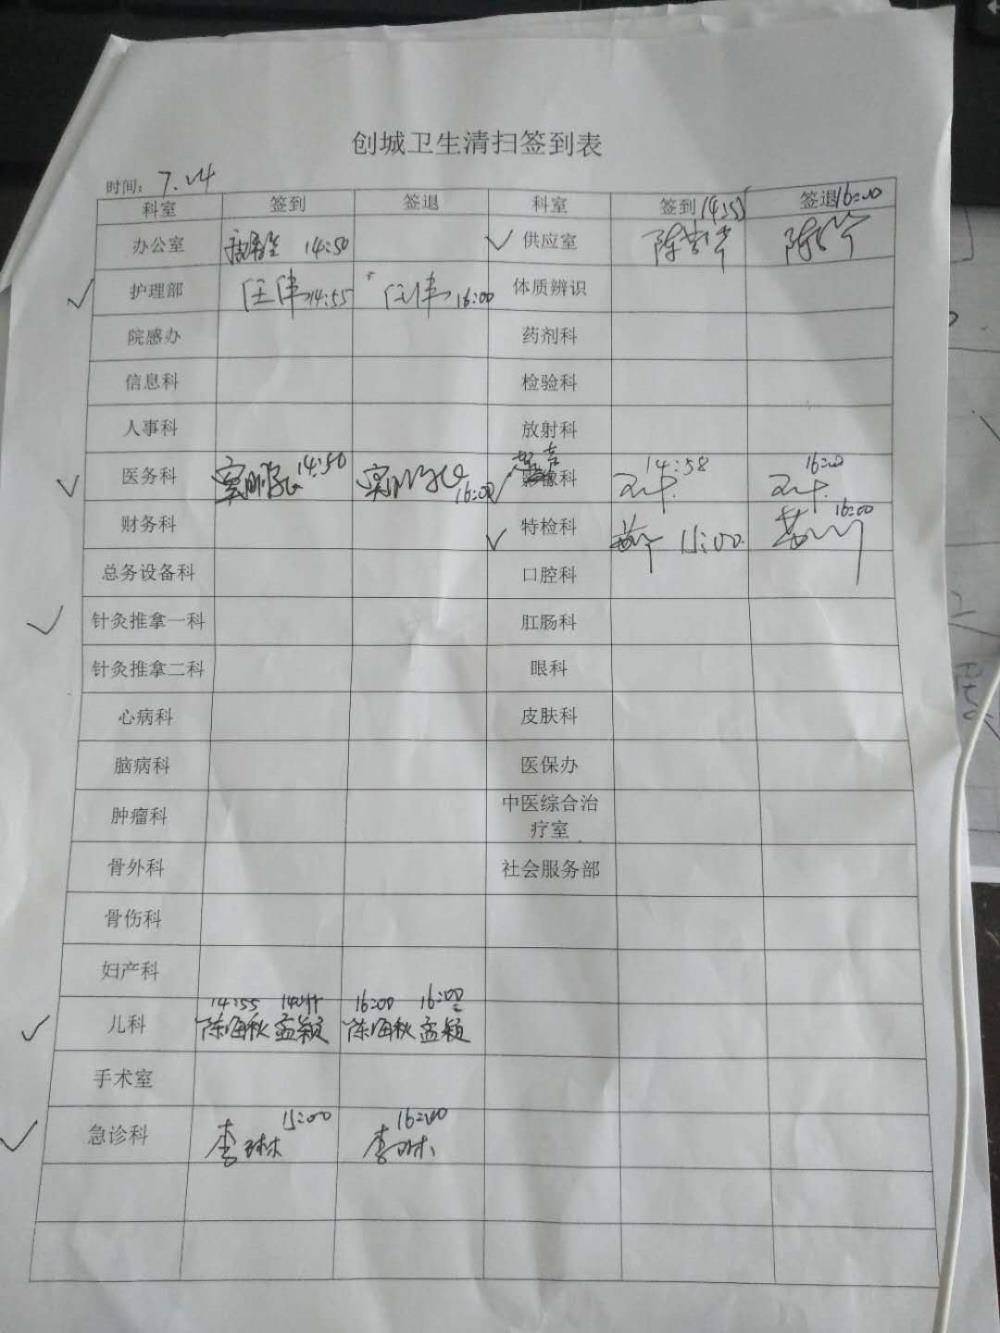 创城卫生清扫签到表
时间: 7.24
科室 签到 签退 科室 签到 14:55 签退 16:00
办公室 14:50 供应室 陈
护理部 汪伟 14:55 汪伟 16:00 体质辨识
院感办 药剂科
信息科 检验科
人事科 放射科
医务科 14:50 16:00 像科 14:58 16:00
财务科 特检科 15:00 16:00
总务设备科 口腔科
针灸推拿一科 肛肠科
针灸推拿二科 眼科
心病科 皮肤科
脑病科 医保办
肿瘤科 中医综合治
疗室
骨外科 社会服务部
骨伤科
妇产科
14:55 16:00 16:00
儿科 陈海秋 孟颖 陈海秋 孟颖
手术室
急诊科 李琳 15:00 李琳 16:00